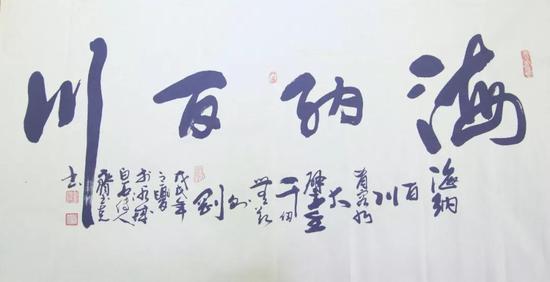 海纳百川
海纳
百
川
有容乃
大
壁立
千仞
無欲
则
刚
戊戌年
之夏
书